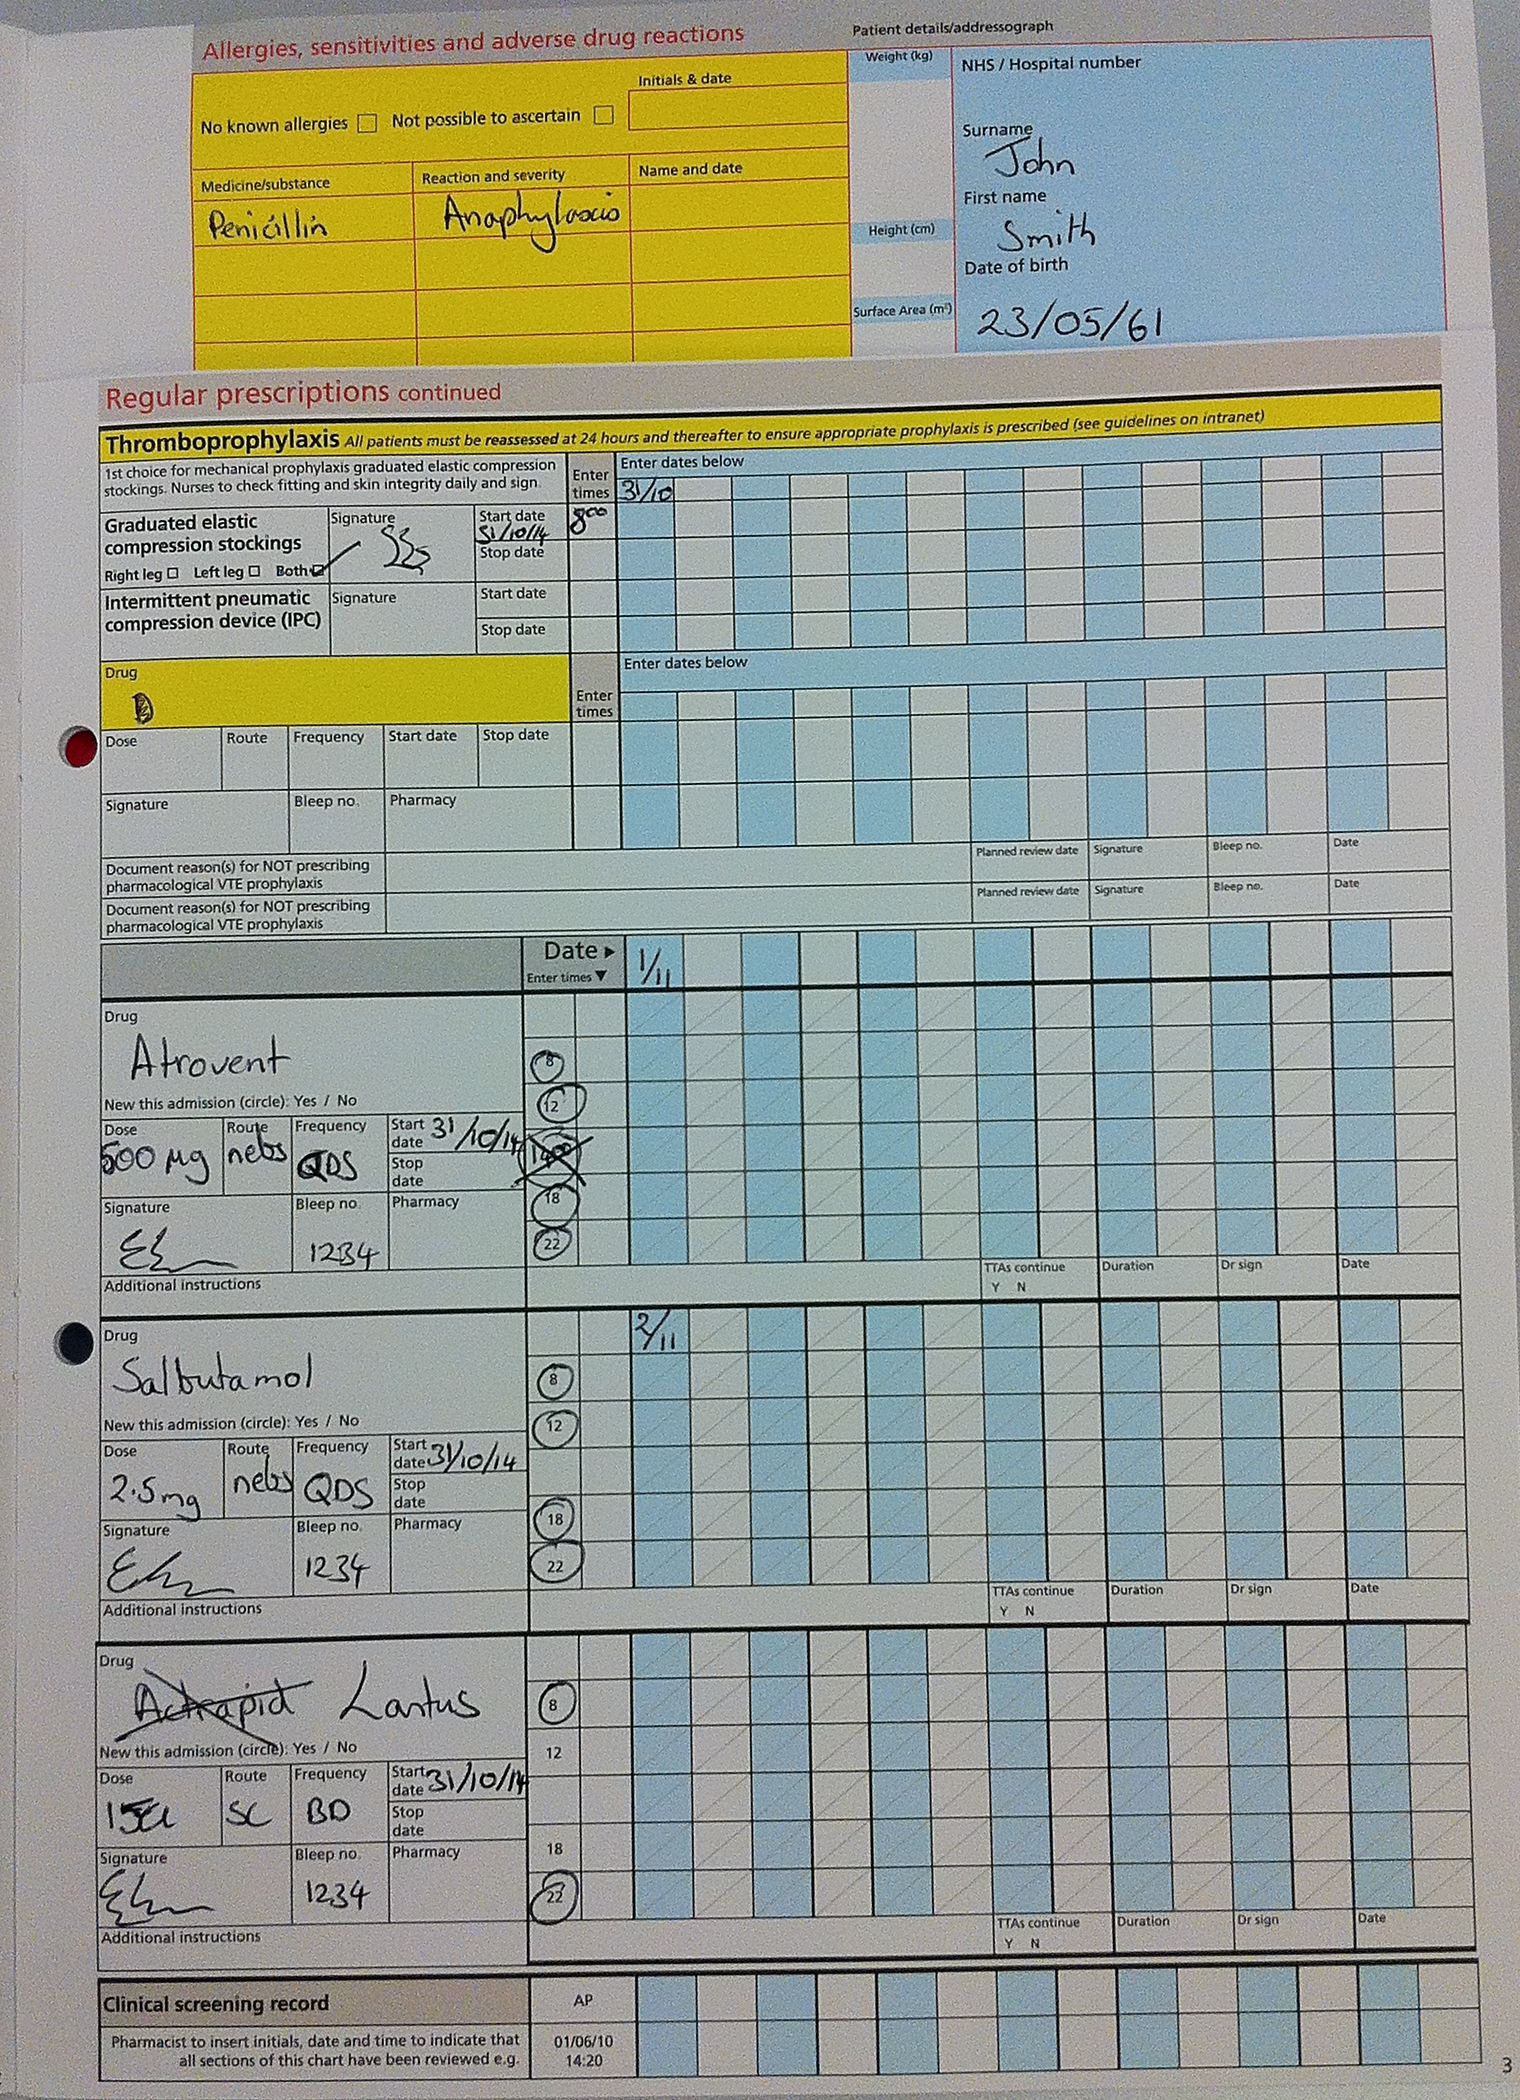 Allergies, sensitivities and adverse drug reactions
Patient details/addressograph
No known allergies Not possible to ascertain Initials & date
Medicine/substance Reaction and severity Name and date
Penicillin Anaphylaxis
Weight (kg)
Height (cm)
Surface Area (m²)
NHS / Hospital number
Surname
John
First name
Smith
Date of birth
23/05/61
Regular prescriptions continued
Thromboprophylaxis All patients must be reassessed at 24 hours and thereafter to ensure appropriate prophylaxis is prescribed (see guidelines on intranet)
1st choice for mechanical prophylaxis graduated elastic compression
stockings. Nurses to check fitting and skin integrity daily and sign.
Enter times
Enter dates below
31/10
Graduated elastic
compression stockings
Right leg Left leg Both
Signature
Start date
31/10/14
Stop date
8⁰⁰
Intermittent pneumatic
compression device (IPC)
Signature
Start date
Stop date
Drug
Enter times
Enter dates below
Dose Route Frequency Start date Stop date
Signature Bleep no. Pharmacy
Document reason(s) for NOT prescribing
pharmacological VTE prophylaxis
Planned review date Signature Bleep no. Date
Document reason(s) for NOT prescribing
pharmacological VTE prophylaxis
Planned review date Signature Bleep no. Date
Date ▸ 1/11
Enter times ▼
Drug
Atrovent
New this admission (circle): Yes / No
Dose Route Frequency Start date 31/10/14
500 µg nebs QDS
Stop date
Signature Bleep no. Pharmacy
1234
8
12
18
22
Additional instructions
TTAs continue Duration Dr sign Date
Y N
2/11
Drug
Salbutamol
New this admission (circle): Yes / No
Dose Route Frequency Start date 31/10/14
2.5mg nebs QDS
Stop date
Signature Bleep no. Pharmacy
1234
8
12
18
22
Additional instructions
TTAs continue Duration Dr sign Date
Y N
Drug
Actrapid Lantus
New this admission (circle): Yes / No
Dose Route Frequency Start date 31/10/14
SC BD
Stop date
Signature Bleep no. Pharmacy
1234
8
12
18
22
Additional instructions
TTAs continue Duration Dr sign Date
Y N
Clinical screening record
AP
Pharmacist to insert initials, date and time to indicate that
all sections of this chart have been reviewed e.g.
01/06/10
14:20
3